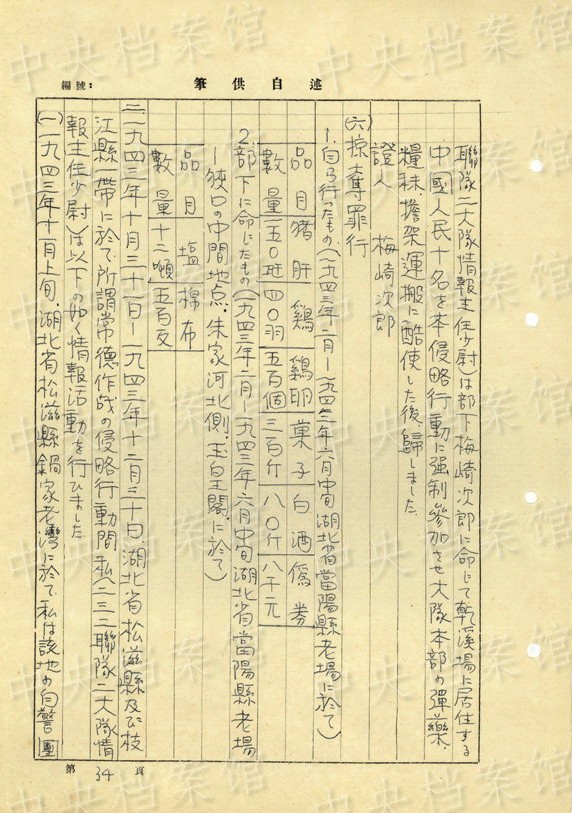 編號：
筆供自述
聯隊二大隊情報主任少尉)は部下梅崎次郎に命じて乾溪場に居住する
中國人民十名を本侵略行動に强制参加させ大隊本部の彈藥、
糧秣、擔架運搬に酷使した後、歸しました。
證人 梅崎次郎
(六)掠奪罪行
1.自ら行ったもの(一九四三年二月—一九四三年六月中旬湖北省當陽縣老場に於て)
品目 猪肝 鷄 鷄卵 菓子 白酒 僞券
數量 一五〇斑 四〇羽 五百個 三百斤 八〇斤 八千元
2.部下に命じたもの(一九四三年二月—一九四三年六月中旬湖北省當陽縣老場
—狹口の中間地点、朱家河北側、玉白王閣、に於て)
品目 塩 棉布
數量 十二噸 五百反
二、一九四三年十月三十一日—一九四三年十二月三十日、湖北省松滋縣及び枝
江縣一帶に於て、所謂常德作战の侵略行動間私(二三二聯隊二大隊情
報主任少尉)は以下の如く情報活動を行ひました
(一)一九四三年十一月上旬、湖北省松滋縣鍋家老灣に於て、私は該地の自警團
第34頁
中央档案馆